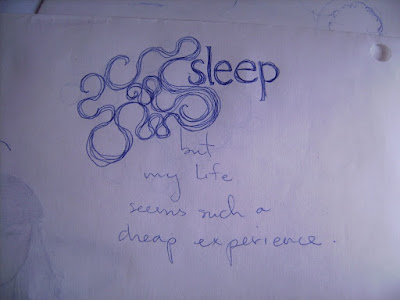 sleep
but
my life
seems such a
cheap experience.